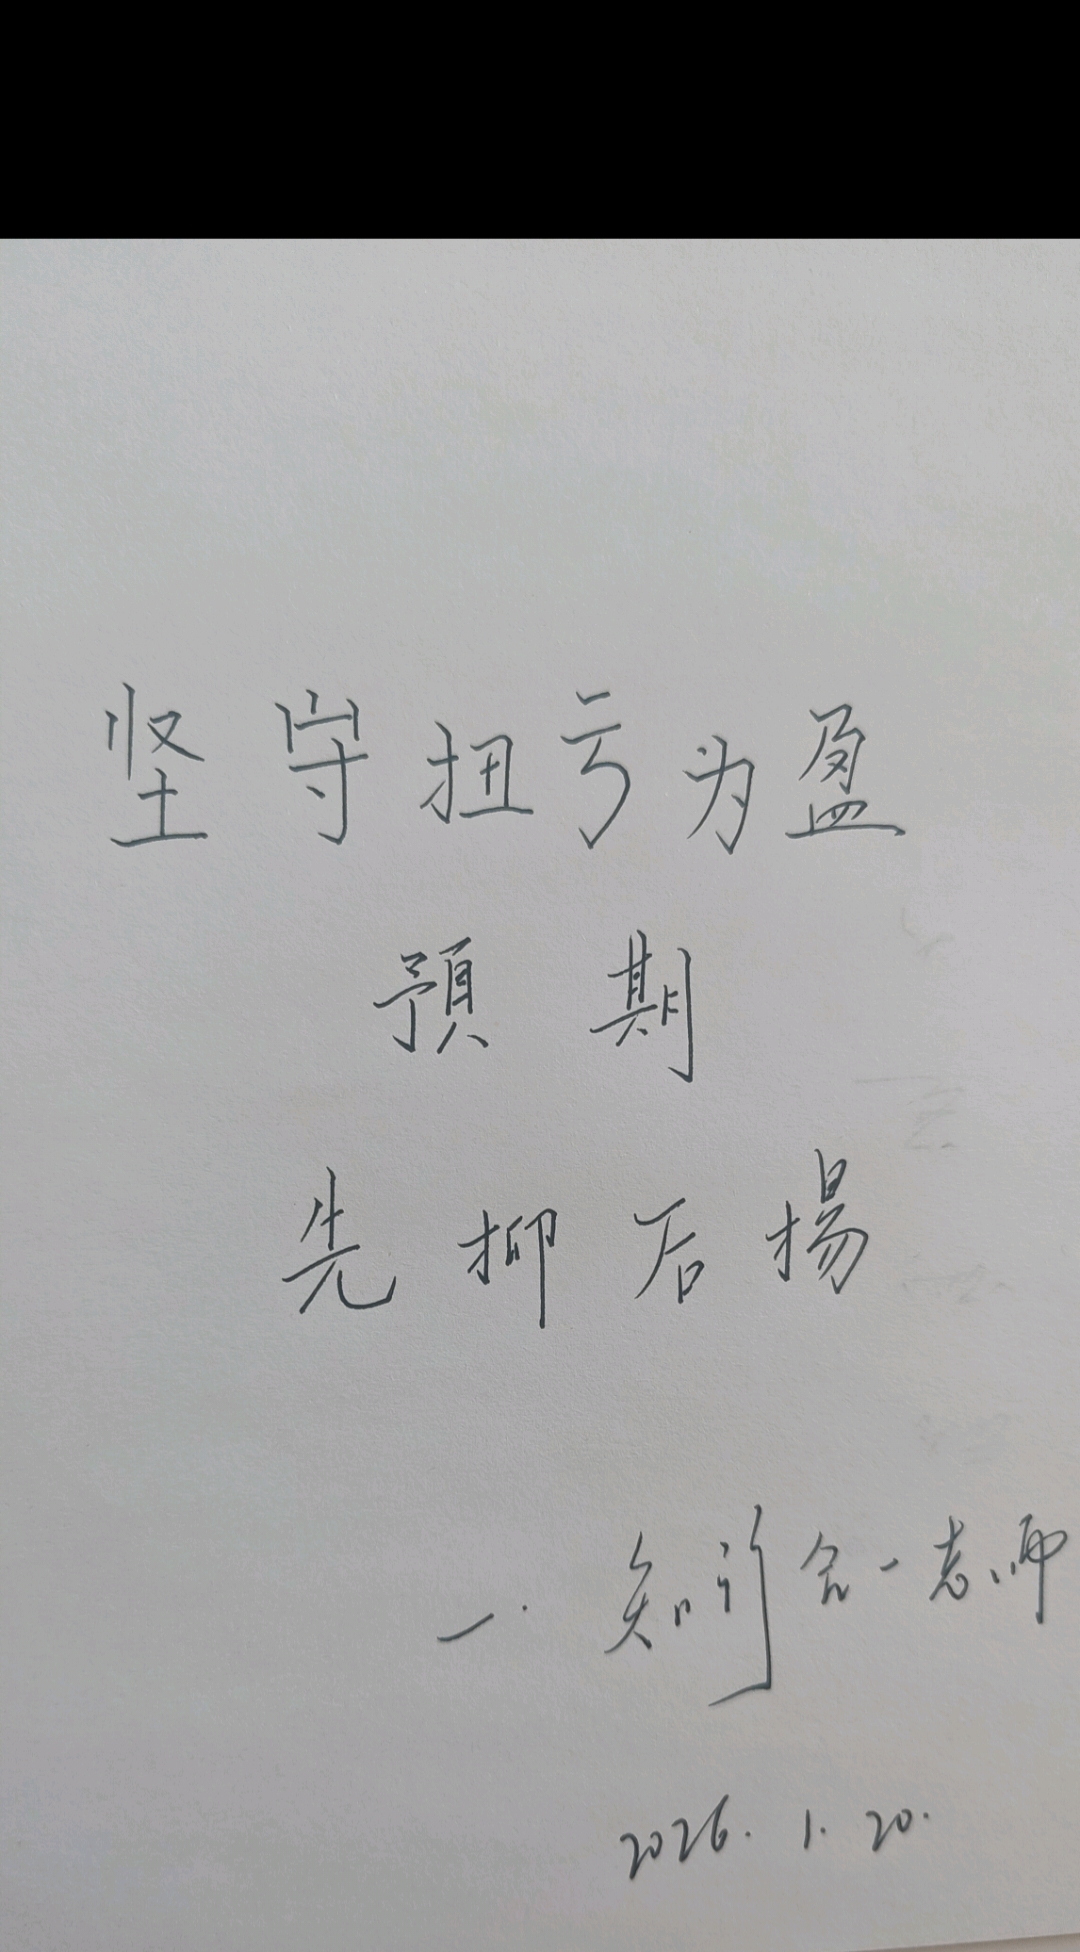 坚守扭亏为盈
預期
先抑后揚
一.知行合一老师
2026.1.20.